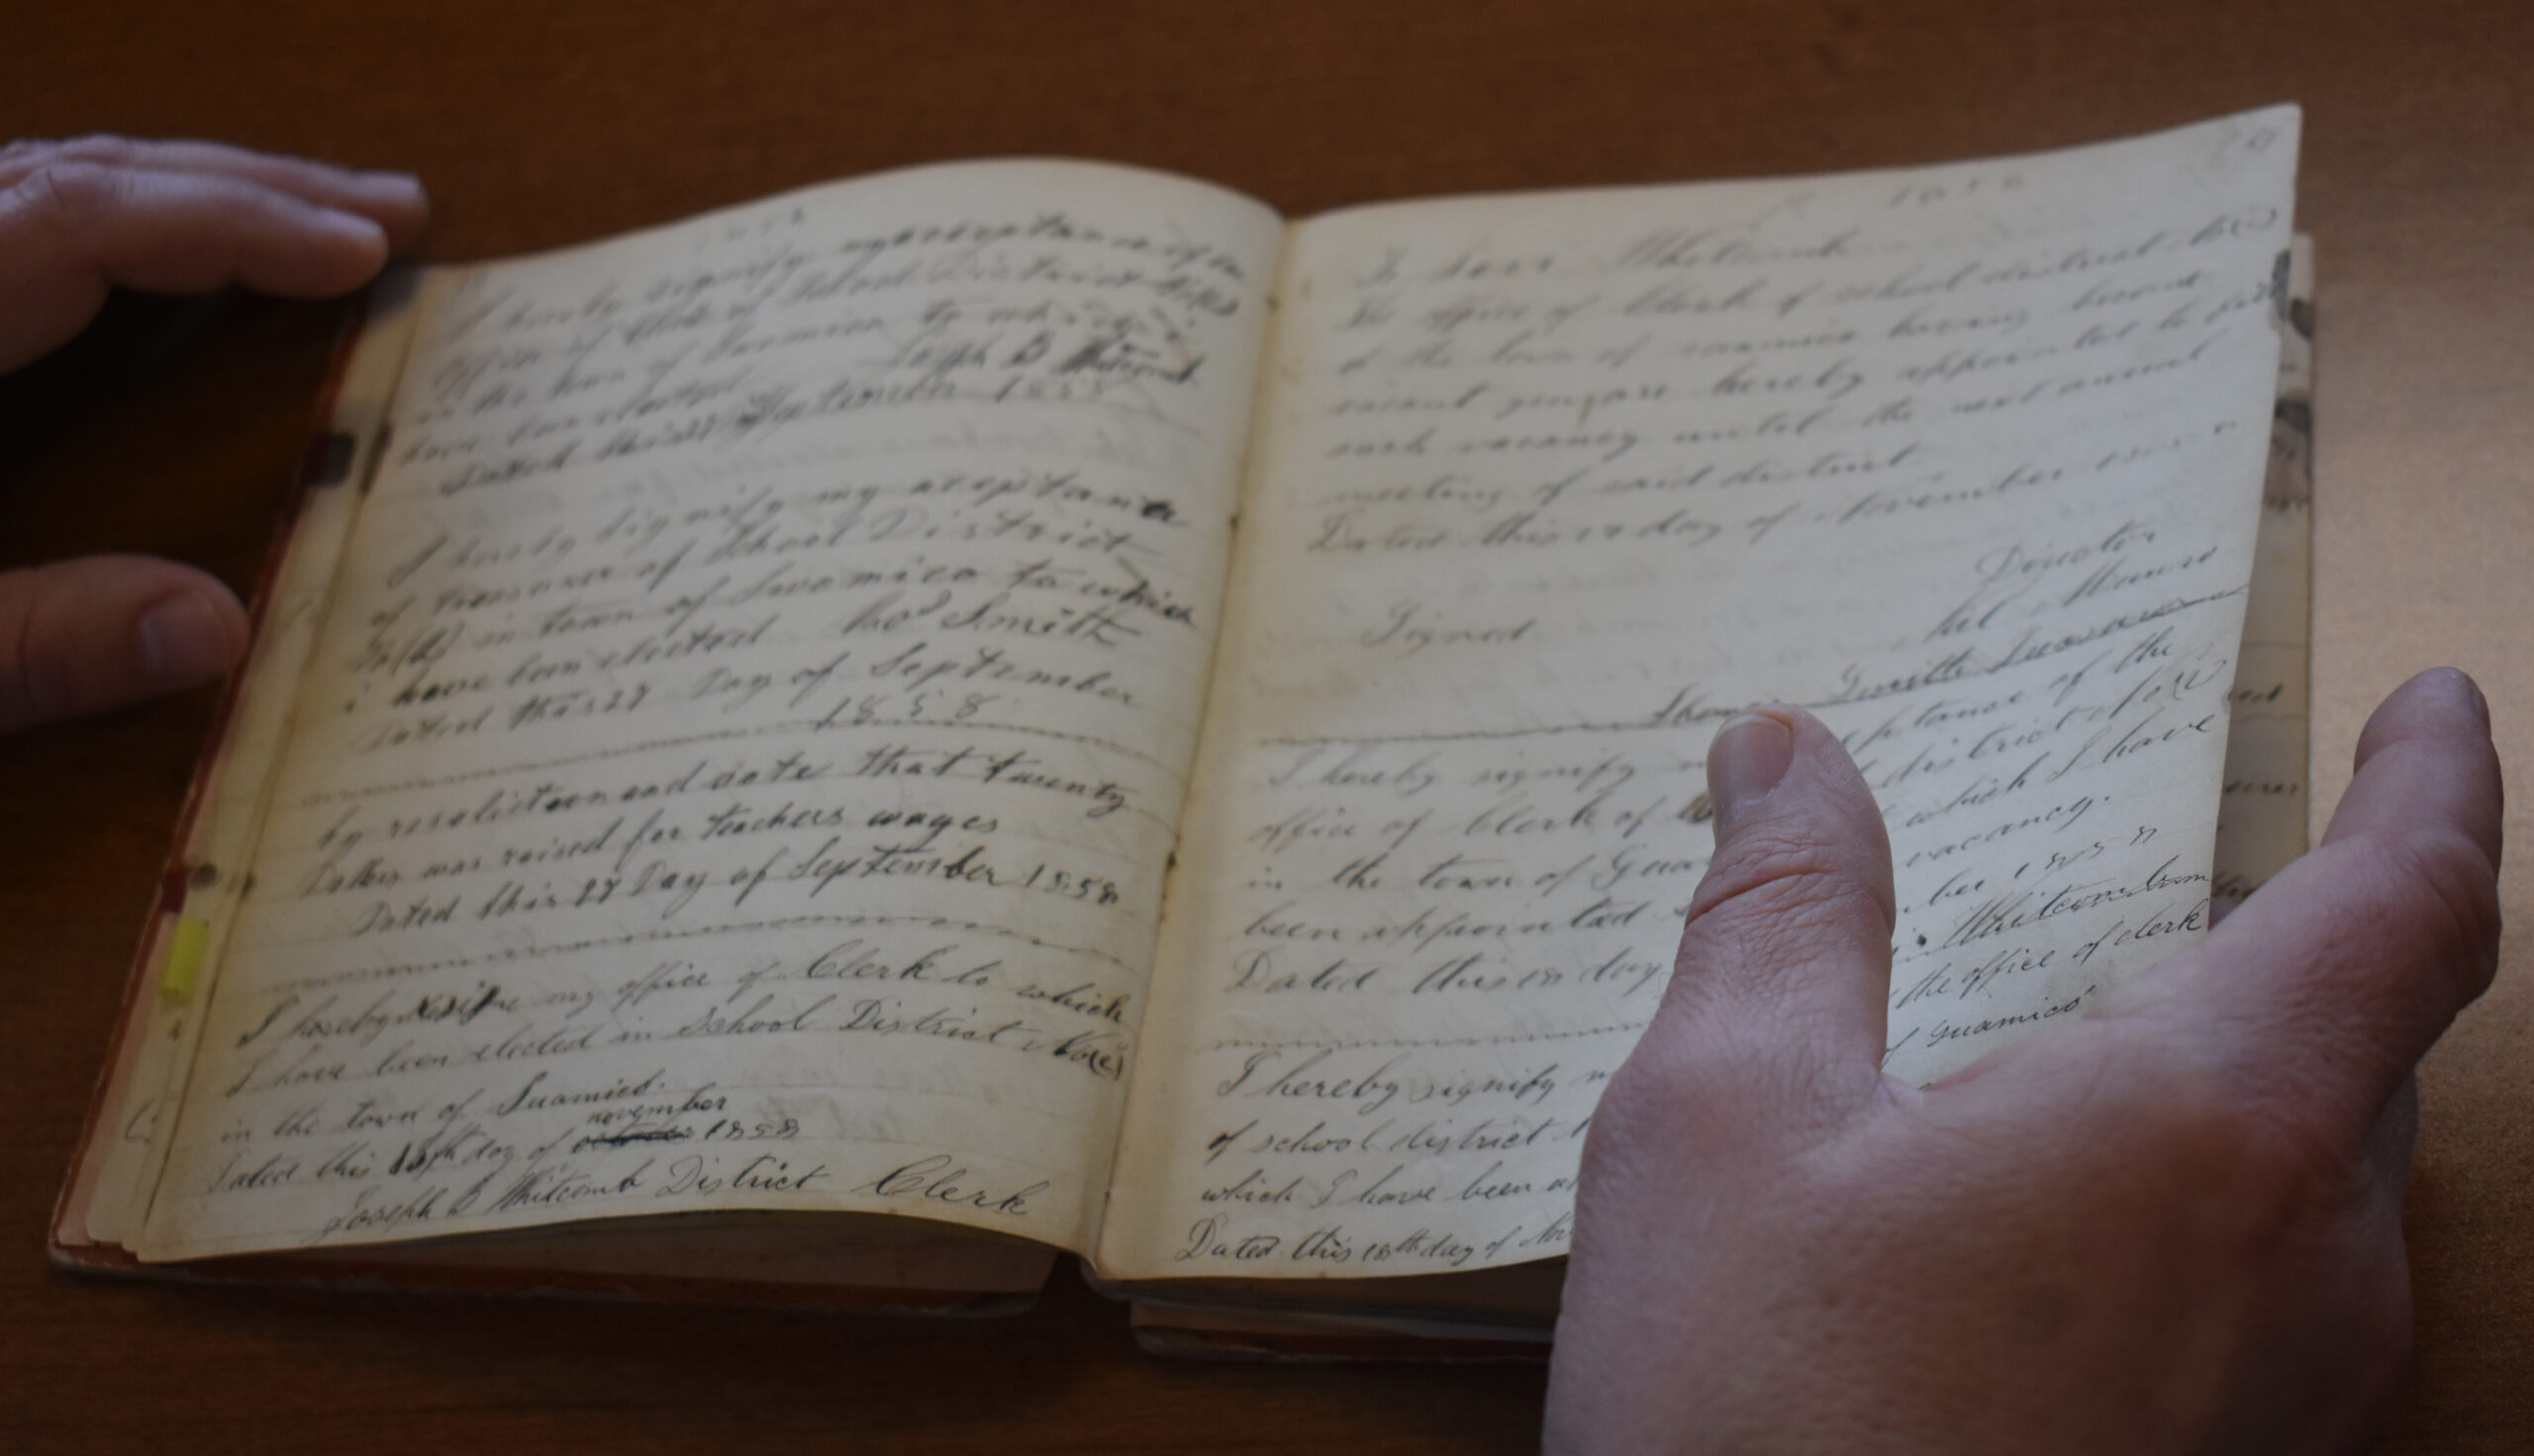 1858
I hereby signify my acceptance of the
office of Clerk of School District No(2)
in the town of Suamico to which i
have been elected Joseph B Whitcomb
Dated this 27 September 1858
I hereby signify my aceptance
of treasurer of School District
No(2) in town of Suamico to which
i have been elected Tho^s Smith
Dated this 27 Day of September
1858
by resolution and vote that twenty
Dollers was raised for teachers wages
Dated this 27 Day of September 1858
I hereby resigne my office of Clerk to which
I have been elected in School District No(2)
in the town of Suamico.
november
Dated this 15th day of 1858
Joseph B Whitcomb District Clerk
To Whitcomb
The office of Clerk of school district No(2)
of the town of suamico having become
vacant you are hereby appointed to fill
such vacancy until the next annual
meeting of said district.
Dated this day of November 1858
Director
Signed Munro
Smith Treasurer
I hereby signify ptance of the
office of Clerk of district No(2)
in the town of Sua which I have
been appointed vacancy.
Dated this 18 day ber 1858
Whitcomb
I hereby signify the office of clerk
of school district of Suamico
which I have been
Dated this 18th day of